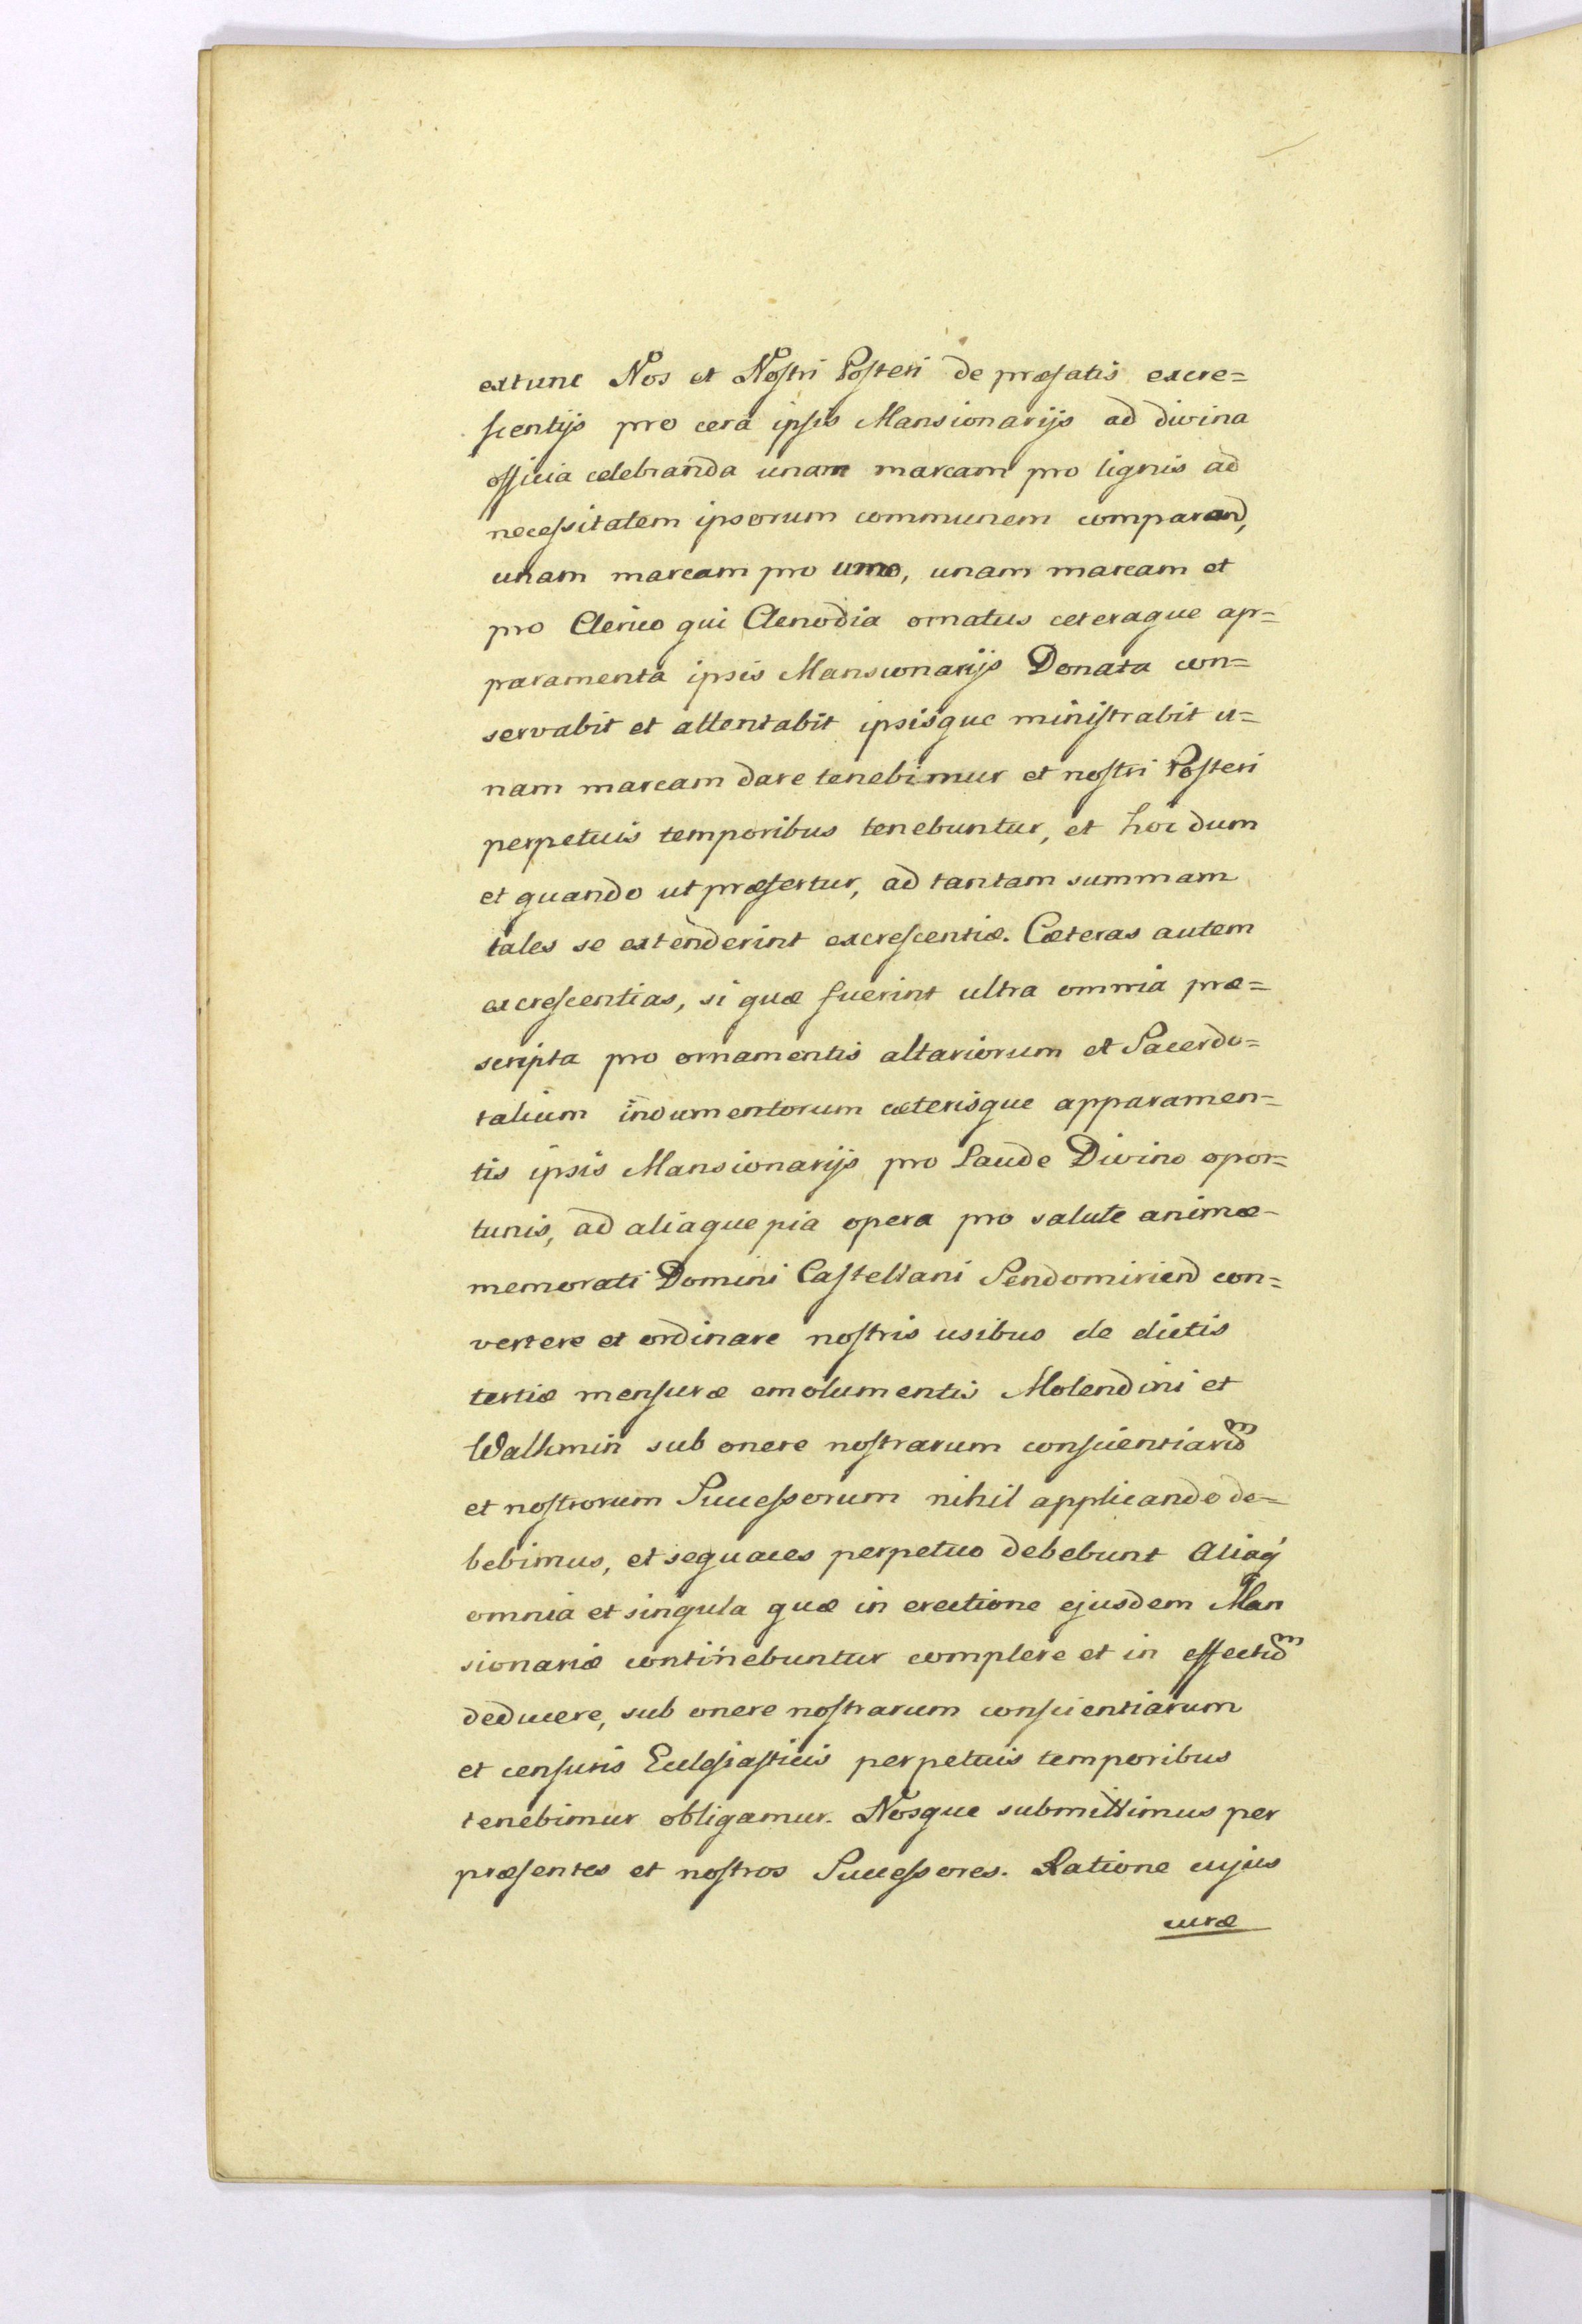 extunc Nos et Nostri Posteri de præfatis excre=
scentijs pro cera ipsis Mansionarijs ad divina
officia celebranda unam marcam pro lignis ad
necessitatem ipsorum communem comparand,
unam marcam pro umo, unam marcam et
pro Clerico qui Clenodia ornatus ceteraque ap=
paramenta ipsis Mansionarijs Donata con=
servabit et attentabit ipsisque ministrabit u=
nam marcam dare tenebimur et nostri Posteri
perpetuis temporibus tenebuntur, et hoc dum
et quando ut præfertur, ad tantam summam
tales se extenderint excrescentiæ. Cæteras autem
excrescentias, si quæ fuerint ultra omnia præ=
scripta pro ornamentis altariorum et Sacerdo=
talium indumentorum cæterisque apparamen=
tis ipsis Mansionarijs pro Laude Divino opor=
tunis, ad aliaque pia opera pro salute animæ
memorati Domini Castellani Sendomiriend con=
vertere et ordinare nostris usibus de dictis
tertiæ mensuræ emolumentis Molendini et
Walkmin sub onere nostrarum conscientiarum
et nostrorum Successorum nihil applicando de=
bebimus, et sequaces perpetuo debebunt Aliaq
omnia et singula quæ in erectione ejusdem Man
sionariæ continebuntur complere et in effectum
deducere, sub onere nostrarum conscientiarum
et censuris Ecclesiasticis perpetuis temporibus
tenebimur obligamur. Nosque submittimus per
præsentes et nostros Successores. Ratione cujus
curæ